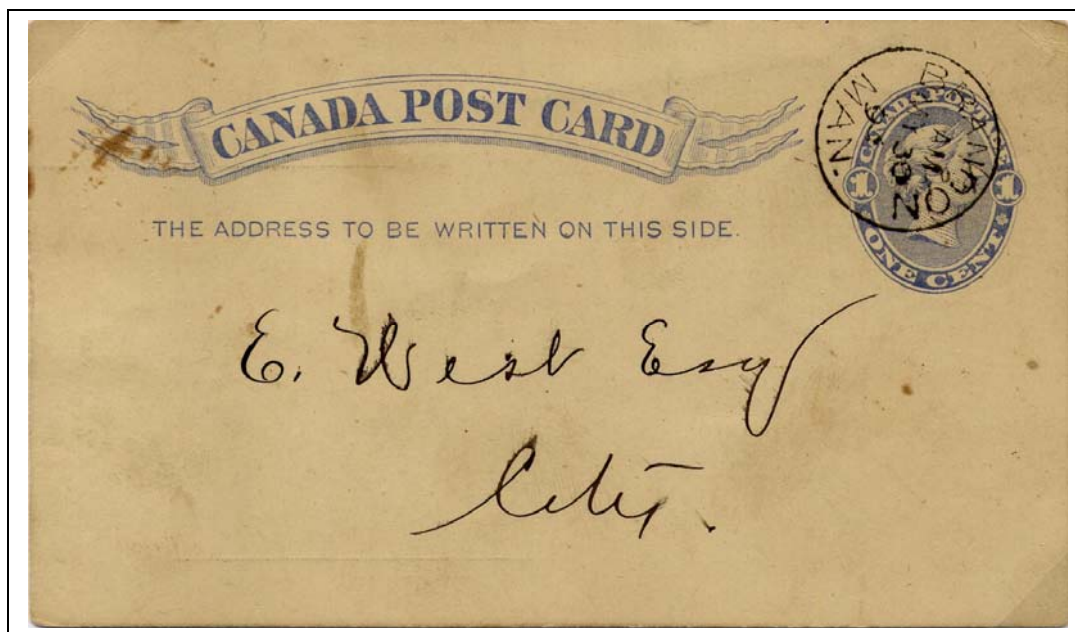 CANADA POST CARD
THE ADDRESS TO BE WRITTEN ON THIS SIDE.
BRANDON
AM
30
MAN.
1 1
ONE CENT
E. West Esq
City.